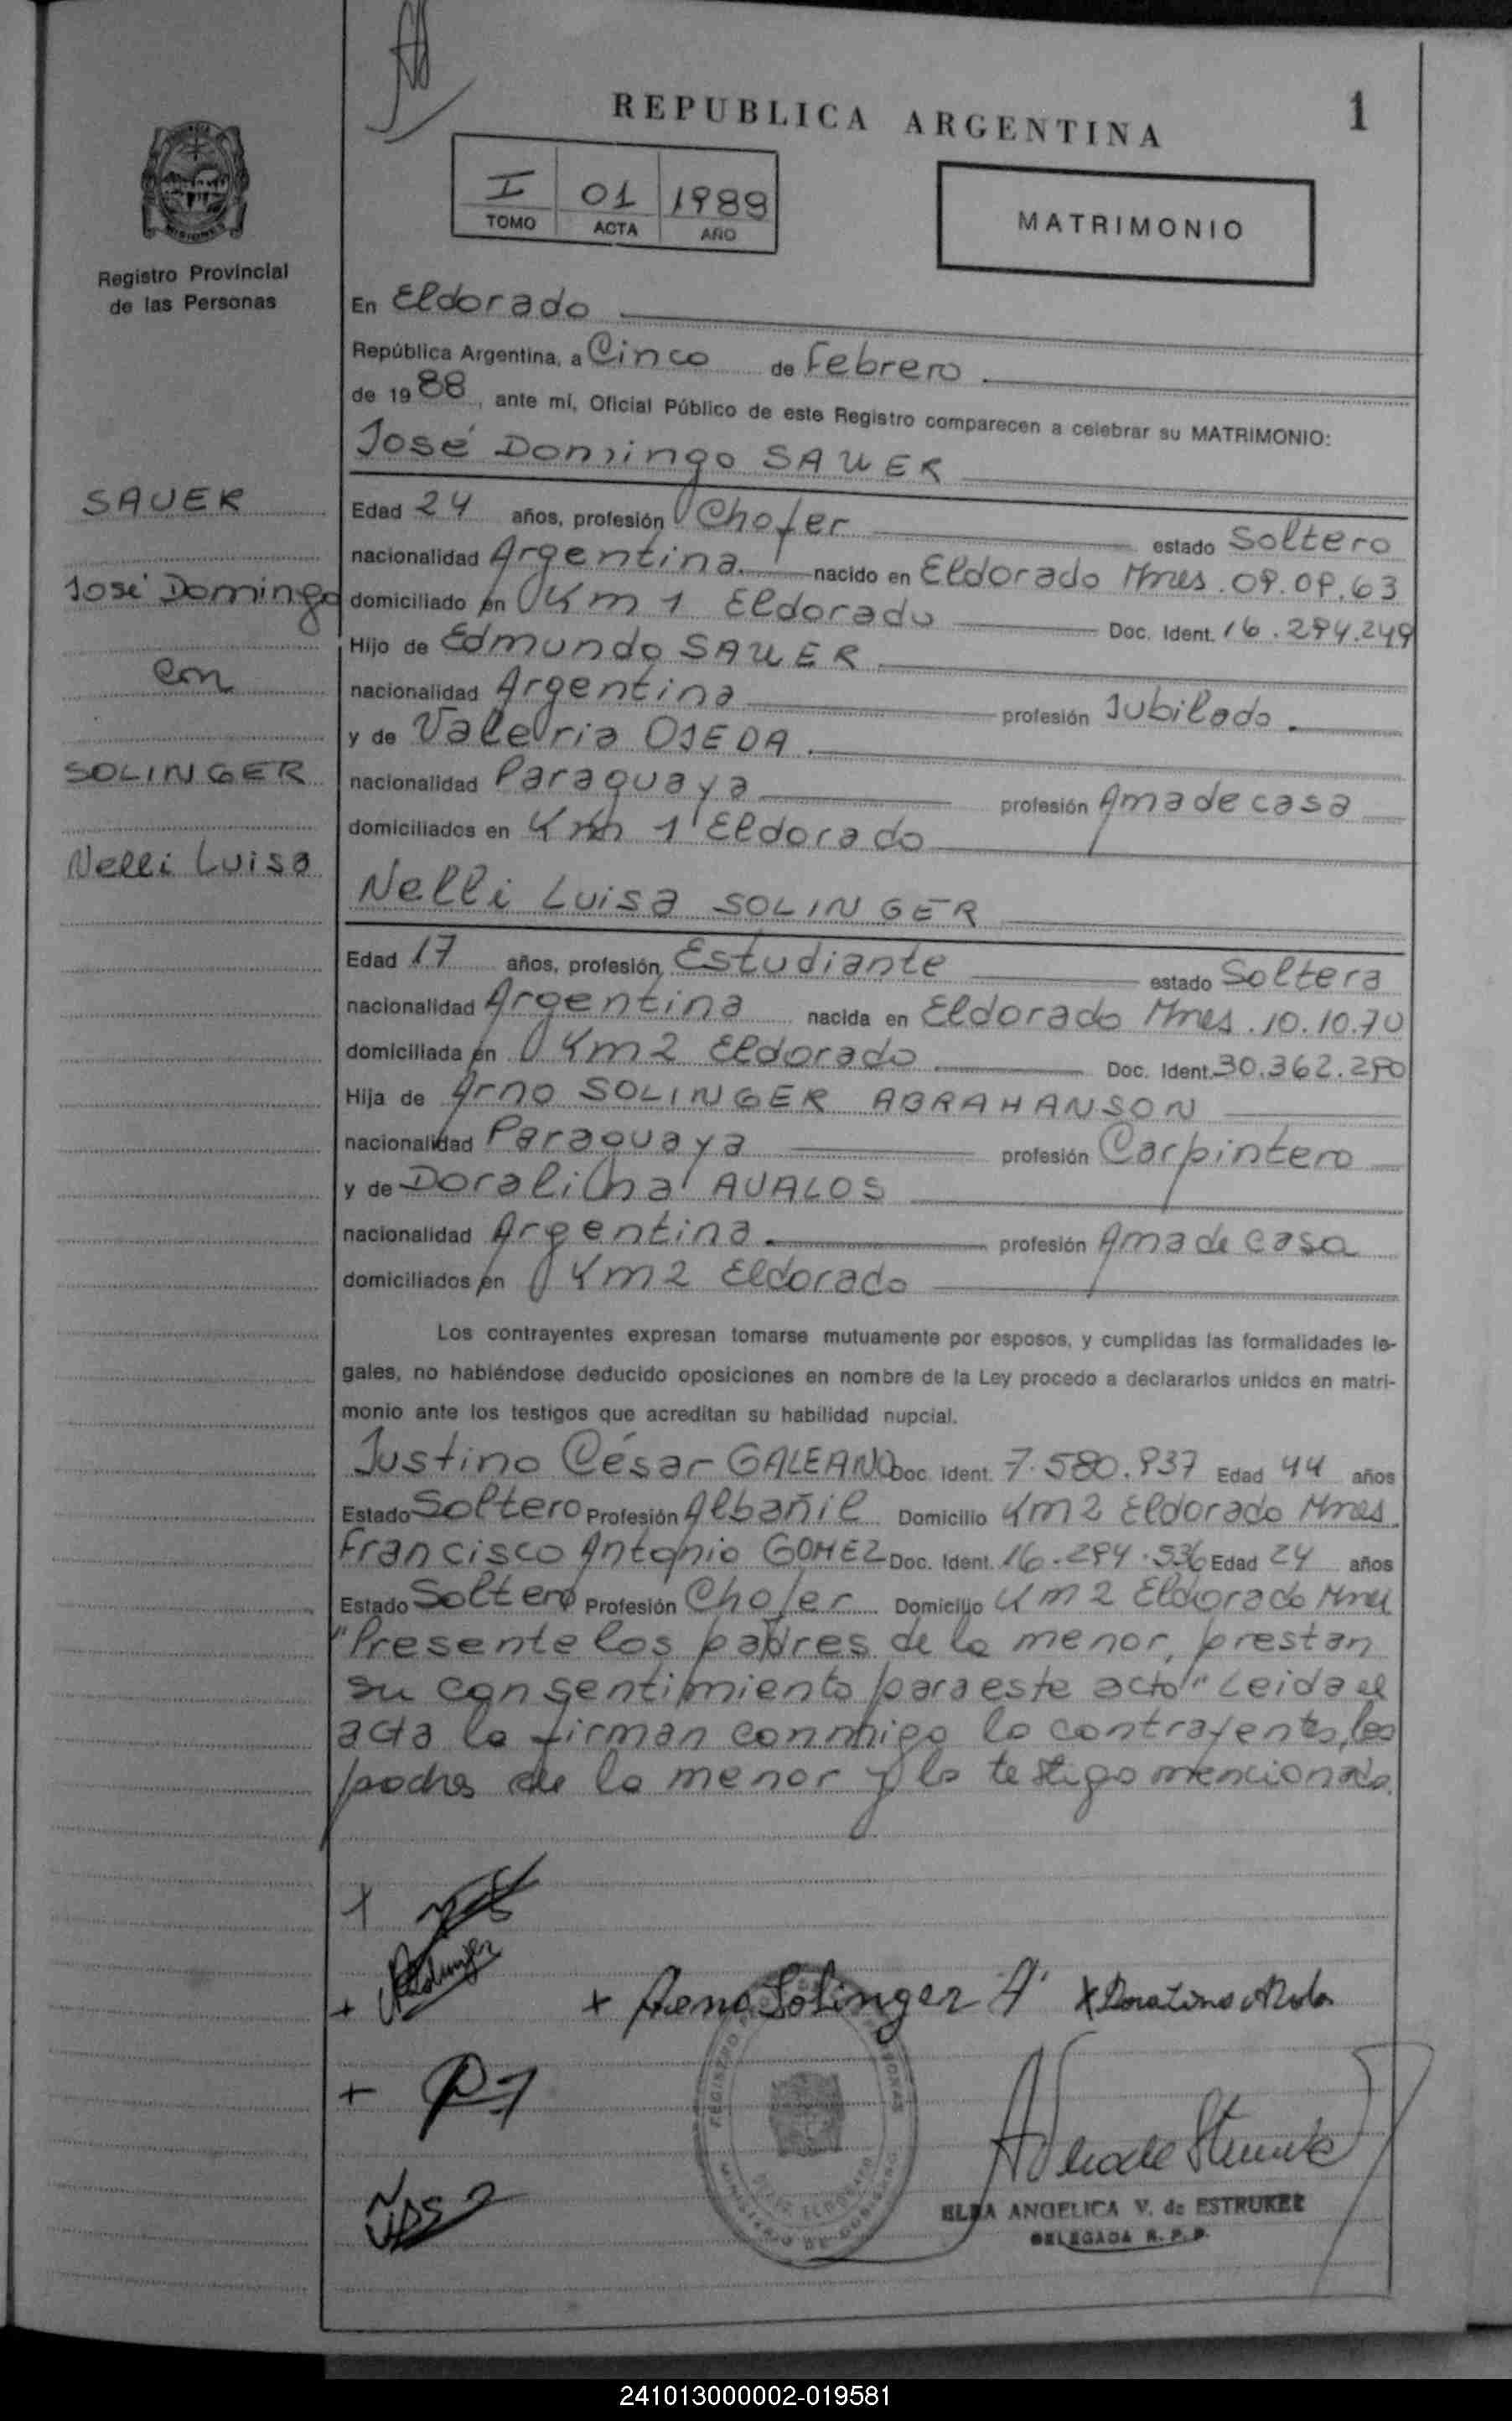 REPUBLICA ARGENTINA
1
I 01 1988
TOMO ACTA AÑO
MATRIMONIO
MISIONES
Registro Provincial
de las Personas
En Eldorado
República Argentina, a Cinco de Febrero
de 1988, ante mí, Oficial Público de este Registro comparecen a celebrar su MATRIMONIO:
José Domingo SAUER
SAUER
José Domingo
con
SOLINGER
Nelli Luisa
Edad 24 años, profesión Chofer estado Soltero
nacionalidad Argentina nacido en Eldorado Mnes. 09.09.63
domiciliado en Km 1 Eldorado Doc. Ident. 16.294.249
Hijo de Edmundo SAUER
nacionalidad Argentina profesión Jubilado.
y de Valeria OJEDA.
nacionalidad Paraguaya profesión Ama de casa
domiciliados en Km 1 Eldorado
Nelli Luisa SOLINGER
Edad 17 años, profesión Estudiante estado Soltera
nacionalidad Argentina nacida en Eldorado Mnes. 10.10.70
domiciliada en Km 2 Eldorado Doc. Ident. 30.362.290
Hija de Arno SOLINGER ABRAHANSON
nacionalidad Paraguaya profesión Carpintero
y de Doralina AVALOS
nacionalidad Argentina. profesión Ama de casa
domiciliados en Km 2 Eldorado
Los contrayentes expresan tomarse mutuamente por esposos, y cumplidas las formalidades le-
gales, no habiéndose deducido oposiciones en nombre de la Ley procedo a declararlos unidos en matri-
monio ante los testigos que acreditan su habilidad nupcial.
Justino César GALEANO Doc. Ident. 7.580.937 Edad 44 años
Estado Soltero Profesión Albañil Domicilio Km 2 Eldorado Mnes.
Francisco Antonio GOMEZ Doc. Ident. 16.294.536 Edad 24 años
Estado Soltero Profesión Chofer Domicilio Km 2 Eldorado Mnes
"Presente los padres de la menor, prestan
su consentimiento para este acto" Leida el
acta la firman conmigo lo contrayentes, los
padres de la menor y lo testigo mencionado.
x Arno Solinger A. x Doralina
ELBA ANGELICA V. de ESTRUKEL
DELEGADA R. P. P.
241013000002-019581